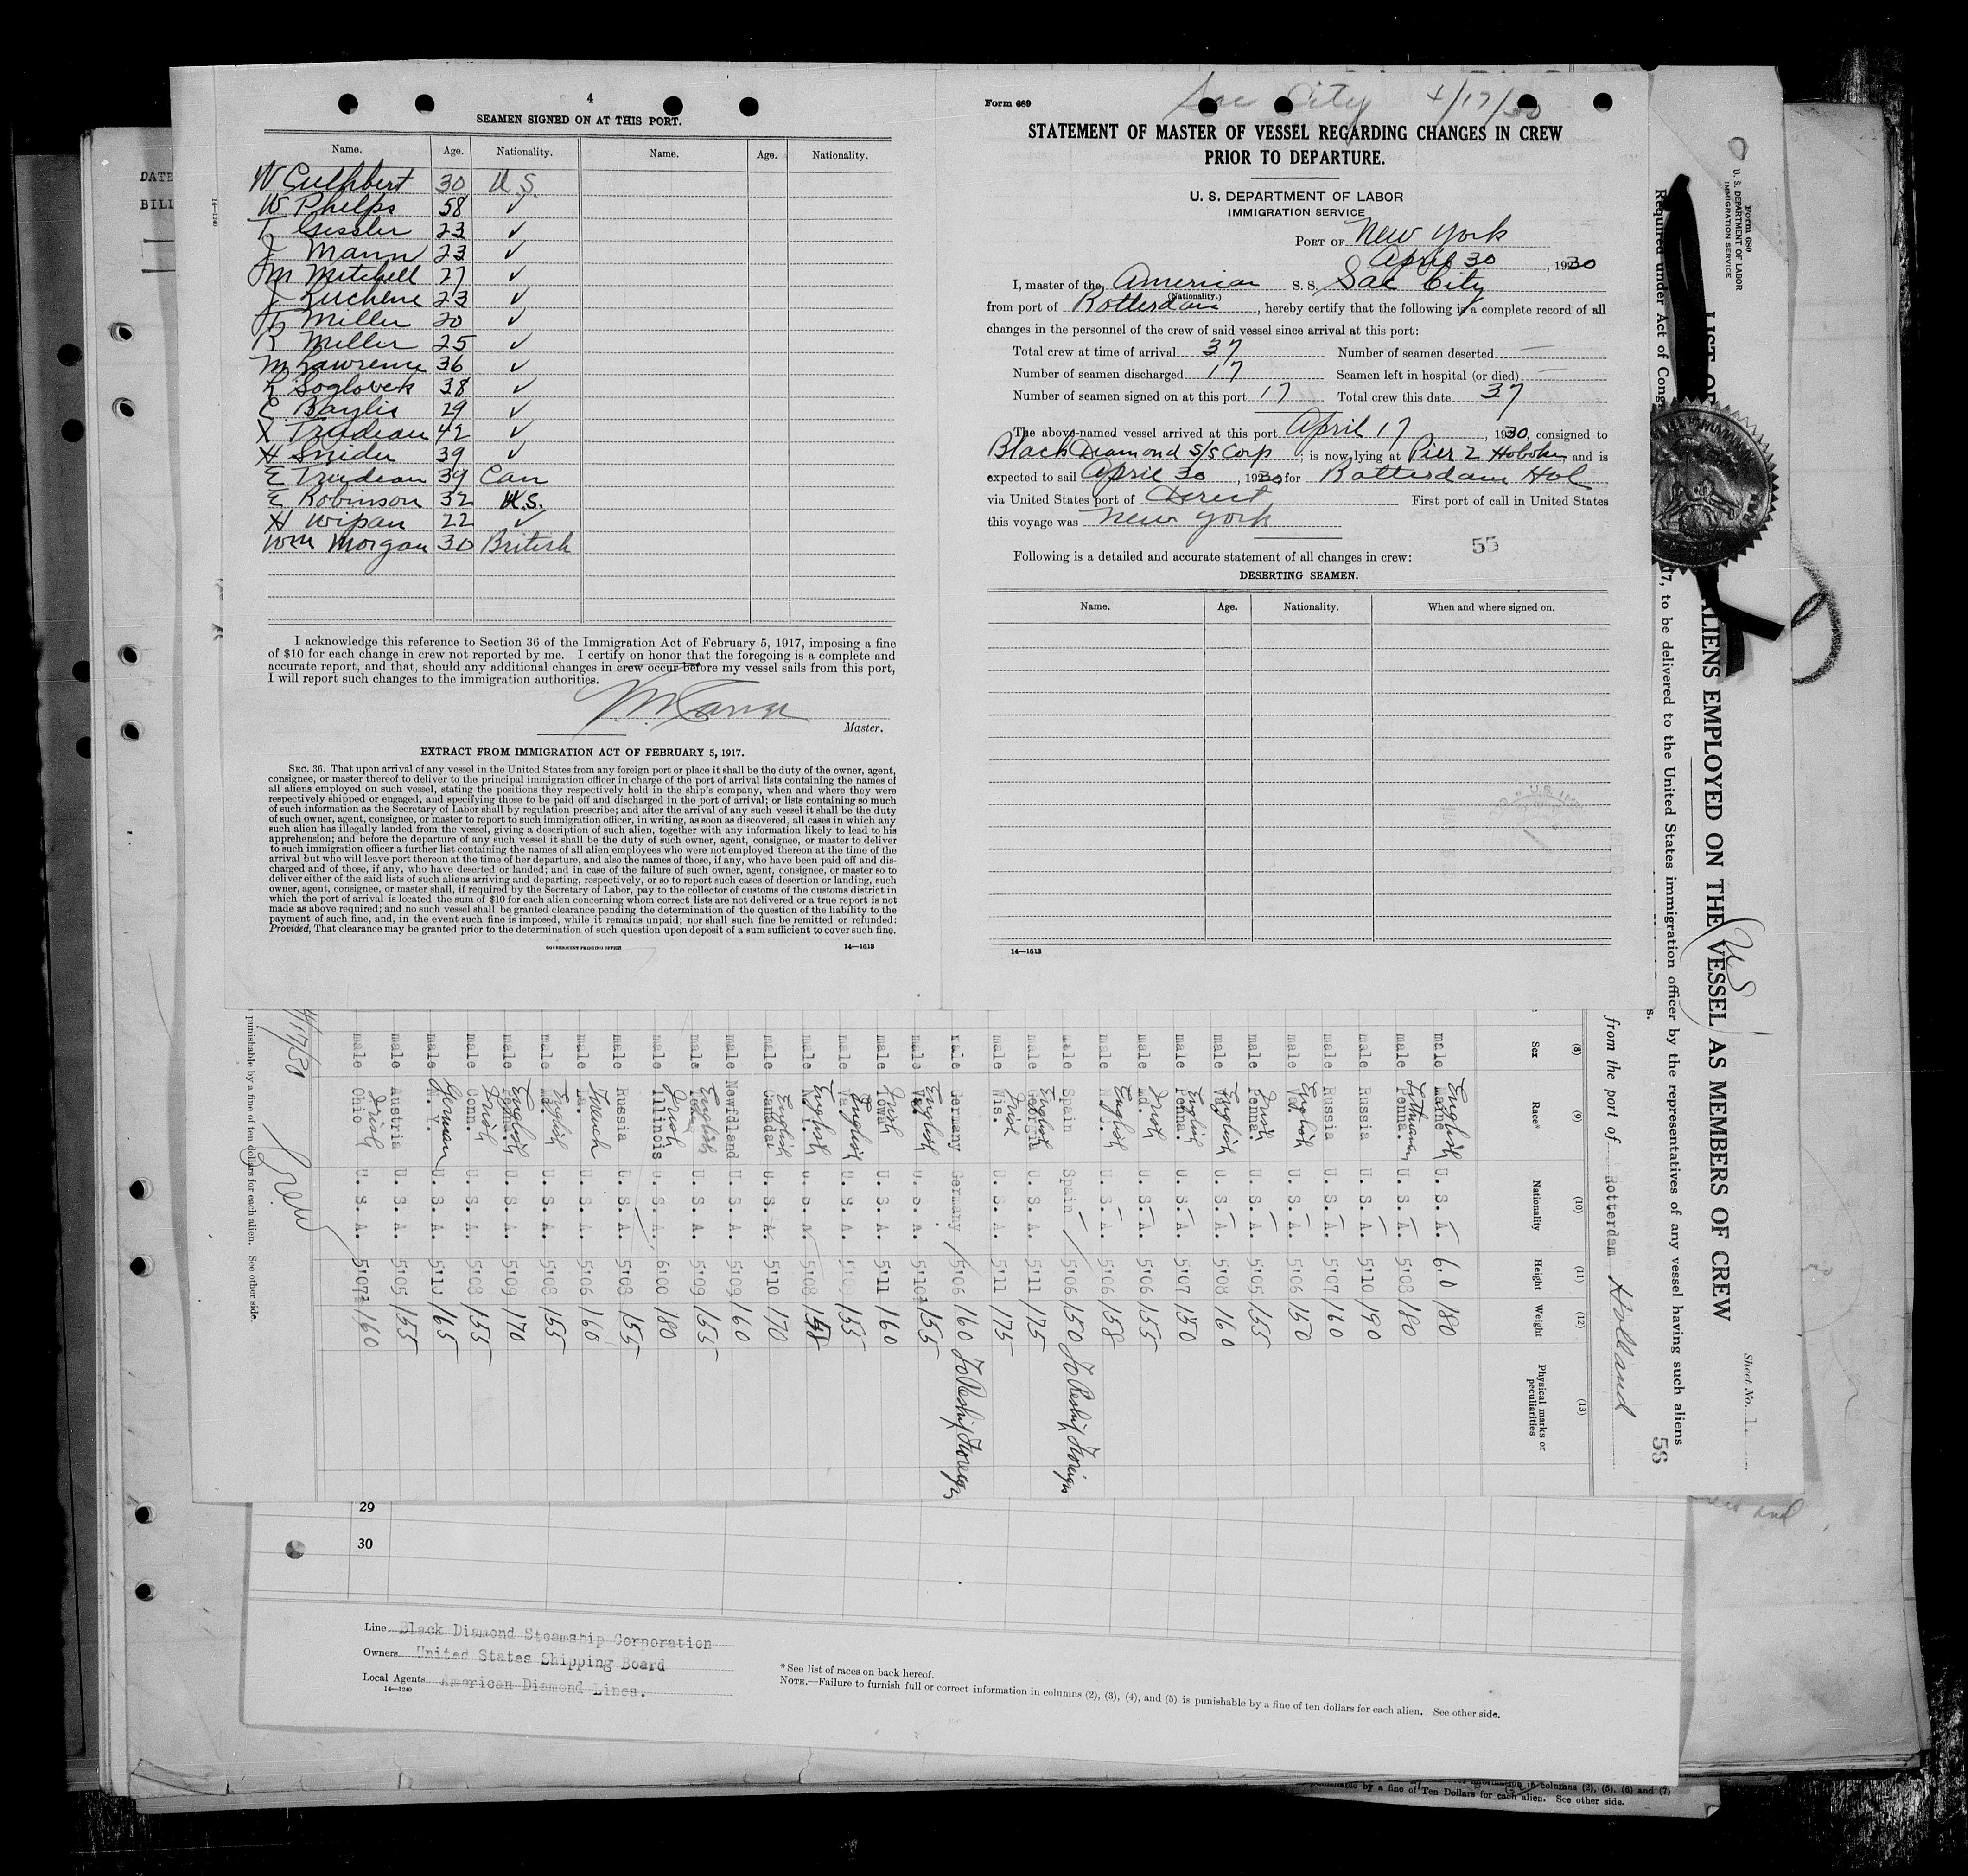 4
SEAMEN SIGNED ON AT THIS PORT.
Name. Age. Nationality. Name. Age. Nationality.
W Cuthbert 30 U.S.
W Phelps 58 ✓
T Gissler 23 ✓
J Mann 23 ✓
M Mitchell 27 ✓
J 23 ✓
Miller 20 ✓
R Miller 25 ✓
M Lawrence 36 ✓
38 ✓
E Baylis 29 ✓
X Trudeau 42 ✓
H Snider 39 ✓
E Trudeau 39 Can
E Robinson 32 U.S.
H Wipan 22 ✓
Wm Morgan 30 British
I acknowledge this reference to Section 36 of the Immigration Act of February 5, 1917, imposing a fine
of $10 for each change in crew not reported by me. I certify on honor that the foregoing is a complete and
accurate report, and that, should any additional changes in crew occur before my vessel sails from this port,
I will report such changes to the immigration authorities.
Master.
EXTRACT FROM IMMIGRATION ACT OF FEBRUARY 5, 1917.
SEC. 36. That upon arrival of any vessel in the United States from any foreign port or place it shall be the duty of the owner, agent,
consignee, or master thereof to deliver to the principal immigration officer in charge of the port of arrival lists containing the names of
all aliens employed on such vessel, stating the positions they respectively hold in the ship's company, when and where they were
respectively shipped or engaged, and specifying those to be paid off and discharged in the port of arrival; or lists containing so much
of such information as the Secretary of Labor shall by regulation prescribe; and after the arrival of any such vessel it shall be the duty
of such owner, agent, consignee, or master to report to such immigration officer, in writing, as soon as discovered, all cases in which any
such alien has illegally landed from the vessel, giving a description of such alien, together with any information likely to lead to his
apprehension; and before the departure of any such vessel it shall be the duty of such owner, agent, consignee, or master to deliver
to such immigration officer a further list containing the names of all alien employees who were not employed thereon at the time of the
arrival but who will leave port thereon at the time of her departure, and also the names of those, if any, who have been paid off and dis-
charged and of those, if any, who have deserted or landed; and in case of the failure of such owner, agent, consignee, or master so to
deliver either of the said lists of such aliens arriving and departing, respectively, or so to report such cases of desertion or landing, such
owner, agent, consignee, or master shall, if required by the Secretary of Labor, pay to the collector of customs of the customs district in
which the port of arrival is located the sum of $10 for each alien concerning whom correct lists are not delivered or a true report is not
made as above required; and no such vessel shall be granted clearance pending the determination of the question of the liability to the
payment of such fine, and, in the event such fine is imposed, while it remains unpaid; nor shall such fine be remitted or refunded:
Provided, That clearance may be granted prior to the determination of such question upon deposit of a sum sufficient to cover such fine.
GOVERNMENT PRINTING OFFICE 14—1613
Form 689
Sac City 4/17/30
STATEMENT OF MASTER OF VESSEL REGARDING CHANGES IN CREW
PRIOR TO DEPARTURE.
U. S. DEPARTMENT OF LABOR
IMMIGRATION SERVICE
PORT OF New York
April 30, 1930
I, master of the American S. S. Sac City
(Nationality.)
from port of Rotterdam, hereby certify that the following is a complete record of all
changes in the personnel of the crew of said vessel since arrival at this port:
Total crew at time of arrival 37 Number of seamen deserted —
Number of seamen discharged 17 Seamen left in hospital (or died) —
Number of seamen signed on at this port 17 Total crew this date 37
The above-named vessel arrived at this port April 17, 1930, consigned to
Black Diamond S/S Corp, is now lying at Pier 2 Hoboken, and is
expected to sail April 30, 1930 for Rotterdam Hol
via United States port of Direct First port of call in United States
this voyage was New York
55
Following is a detailed and accurate statement of all changes in crew:
DESERTING SEAMEN.
Name. Age. Nationality. When and where signed on.
14—1613
Form 680
U. S. DEPARTMENT OF LABOR
IMMIGRATION SERVICE
Sheet No. 1.
LIST OF ALIENS EMPLOYED ON THE VESSEL AS MEMBERS OF CREW
US
Required under Act of Cong 17, to be delivered to the United States immigration officer by the representatives of any vessel having such aliens
56
from the port of Rotterdam Holland
(8) (9) (10) (11) (12) (13)
Sex Race* Nationality Height Weight Physical marks or peculiarities
male English Maine U. S. A. 6'0 180
male Lithuanian Penna. U. S. A. 5'08 180
male Russia U. S. A. 5'10 190
male Russia U. S. A. 5'07 160
male English Va. U. S. A. 5'06 150
male Irish Penna. U. S. A. 5'05 155
male English Va. U. S. A. 5'08 160
male English Penna. U. S. A. 5'07 150
male Irish Md. U. S. A. 5'06 155
male English N.J. U. S. A. 5'06 158
male Spain Spain 5'06 150 To Reship Foreign
male English Georgia U. S. A. 5'11 175
male Irish Wis. U. S. A. 5'11 175
male Germany Germany 5'06 160 To Reship Foreign
male English Va. U. S. A. 5'10½ 155
male Irish Iowa U. S. A. 5'11 160
male English Va. U. S. A. 5'09 155
male English N.J. U. S. A. 5'08 158
male English Canada U. S. A. 5'10 170
male Newfdland U. S. A. 5'09 160
male English U. S. A. 5'09 155
male Irish Illinois U. S. A. 6'00 180
male Russia U. S. A. 5'08 155
male French La. U. S. A. 5'06 160
male English Md. U. S. A. 5'08 155
male English U. S. A. 5'09 170
male Irish Conn. U. S. A. 5'08 155
male German N. Y. U. S. A. 5'10 165
male Austria U. S. A. 5'05 155
male Irish Ohio U. S. A. 5'07½ 160
4/17/30
punishable by a fine of ten dollars for each alien. See other side.
14—1240
DATE
BILL
29
30
Line Black Diamond Steamship Corporation
Owners United States Shipping Board
Local Agents American Diamond Lines.
14—1240
* See list of races on back hereof.
NOTE.—Failure to furnish full or correct information in columns (2), (3), (4), and (5) is punishable by a fine of ten dollars for each alien. See other side.
information in columns (2), (5), (6) and (7)
punishable by a fine of Ten Dollars for each alien. See other side.